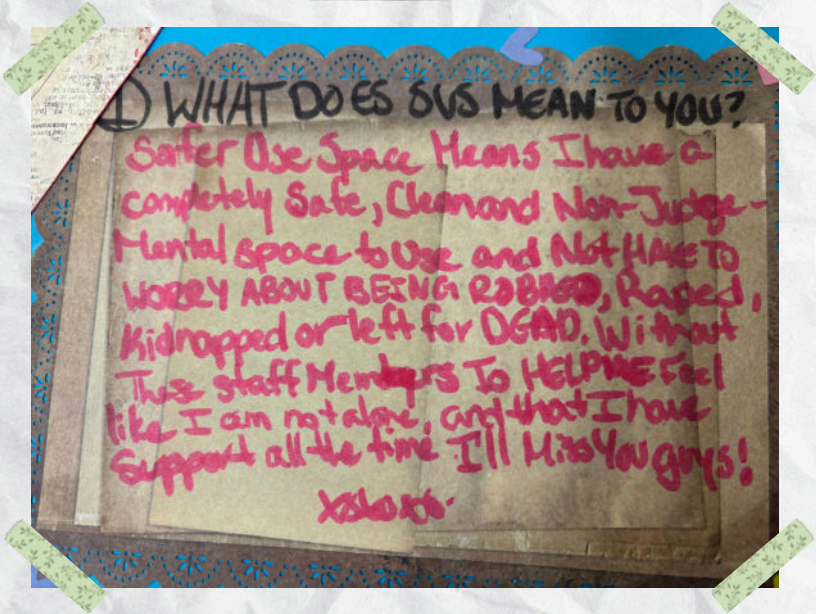 ① WHAT DOES SUS MEAN TO YOU?
Safer Use Space Means I have a
completely Safe, Clean and Non-Judge-
Mental space to Use and Not HAVE TO
WORRY ABOUT BEING ROBBED, Raped,
Kidnapped or left for DEAD. Without
These staff Members TO HELP ME Feel
like I am not alone, and that I have
Support all the time I'll Miss You guys!